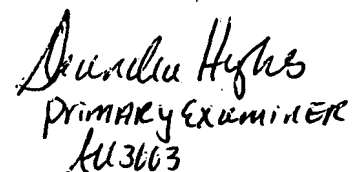 Deandra Hughes
PRIMARY EXAMINER
AU3663